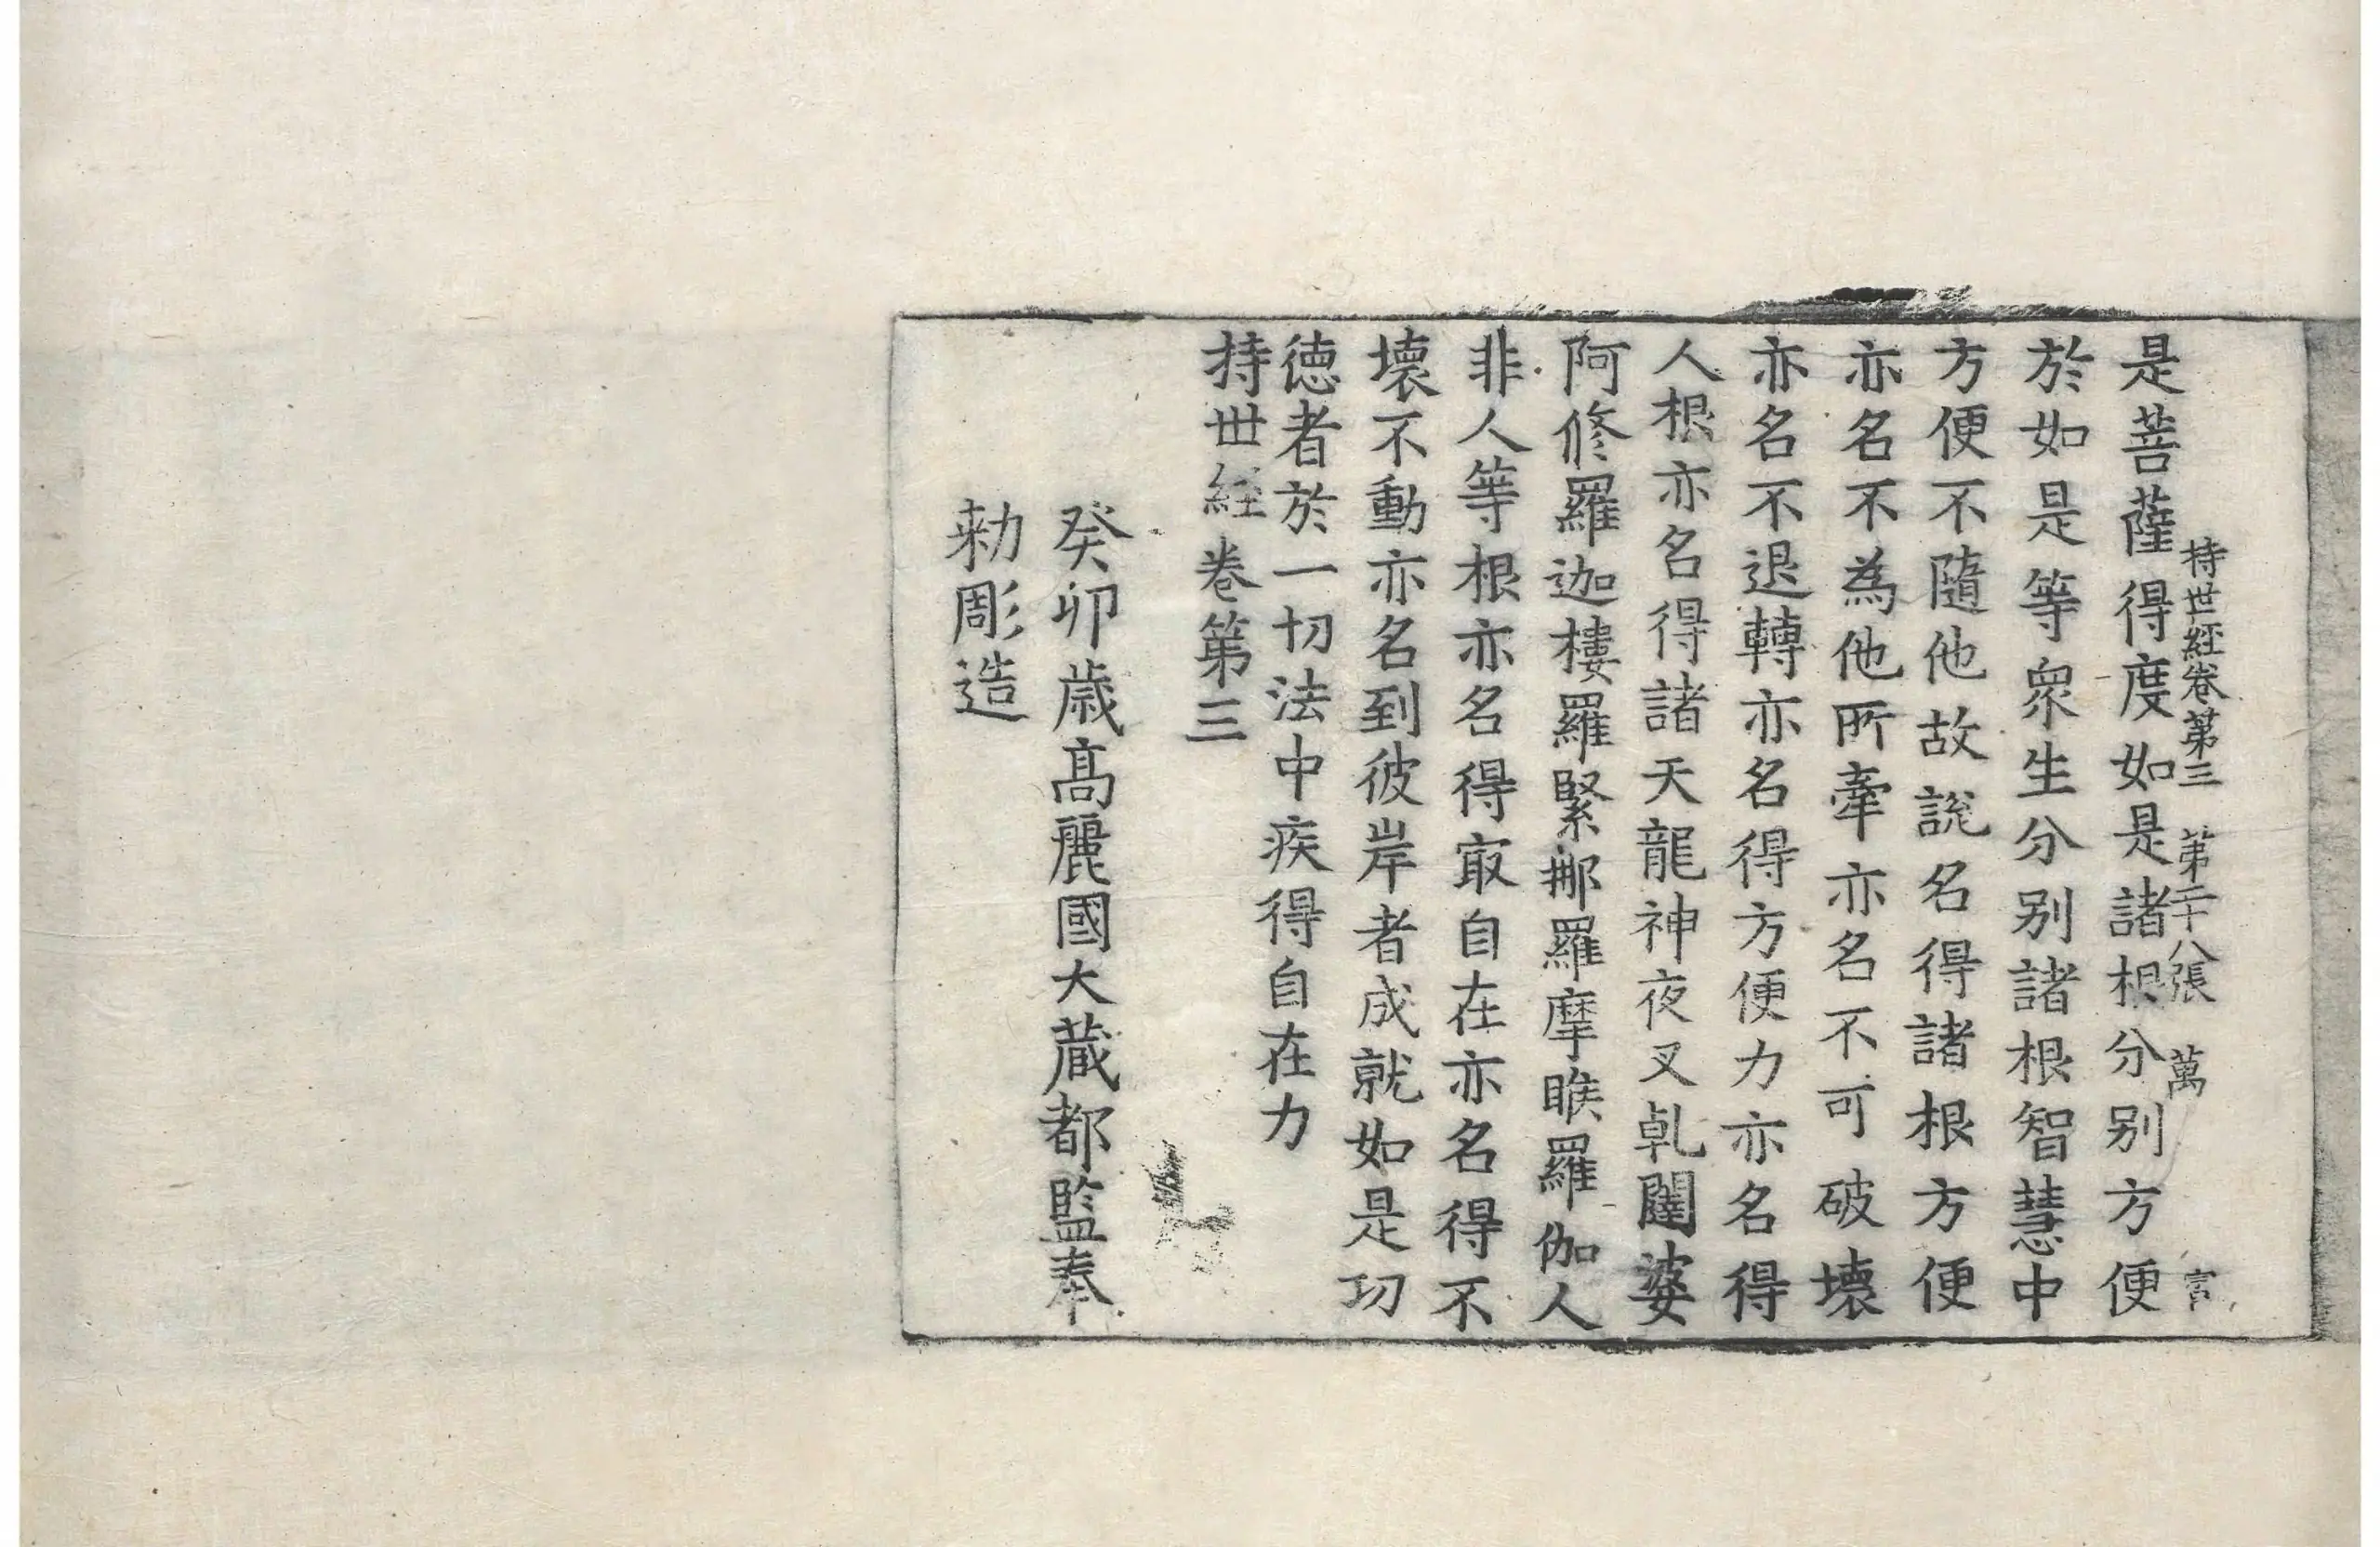 持世経卷第三 第二十八張 萬 言
是菩薩得度如是諸根分別方便
於如是等衆生分別諸根智慧中
方便不隨他故說名得諸根方便
亦名不為他所牽亦名不可破壞
亦名不退轉亦名得方便力亦名得
人根亦名得諸天龍神夜叉乹闥婆
阿修羅迦樓羅緊那羅摩睺羅伽人
非人等根亦名得冣自在亦名得不
壞不動亦名到彼岸者成就如是功
德者於一切法中疾得自在力
持世経卷第三
癸卯歳髙麗國大蔵都監奉
勅彫造